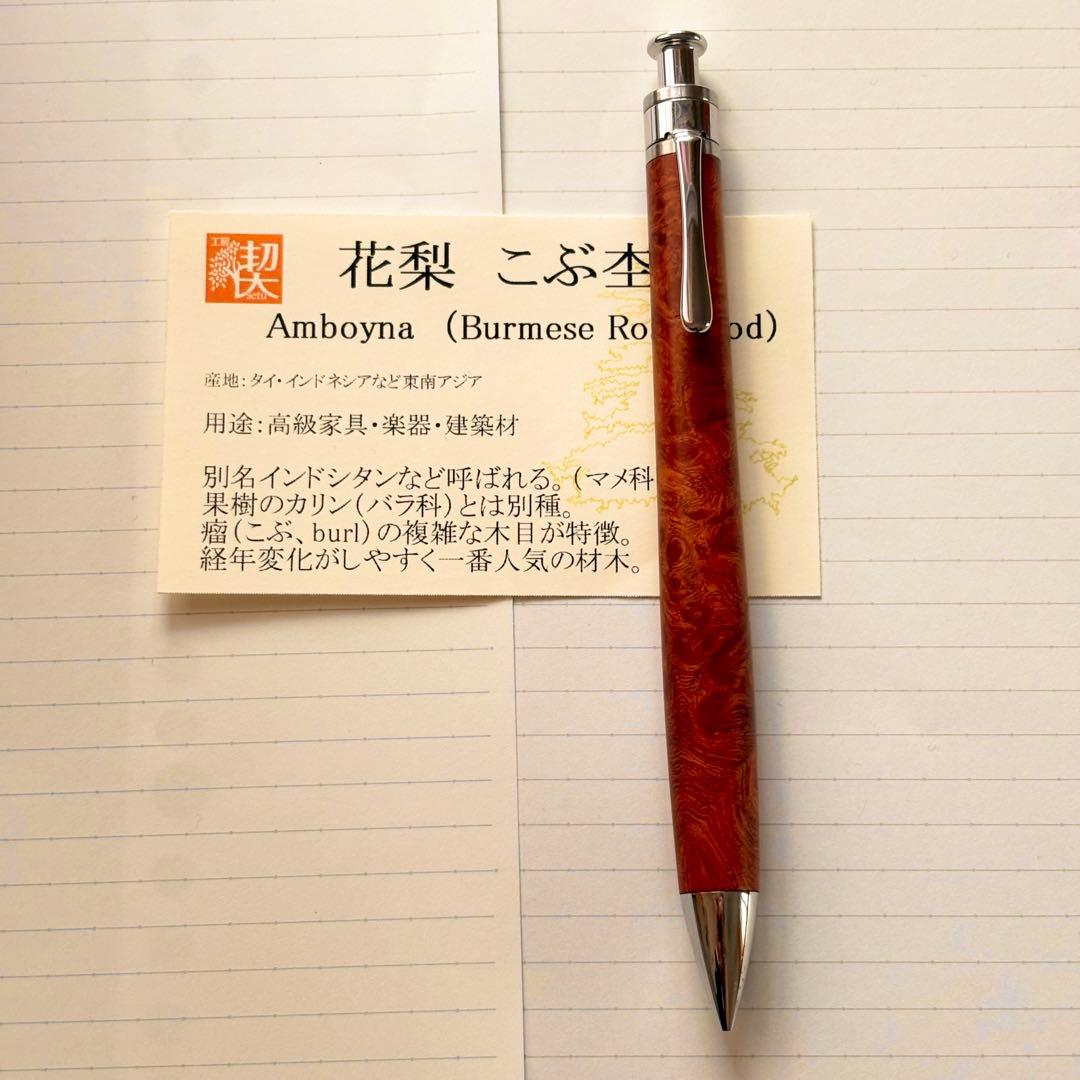 工房
契
setu
花梨 こぶ杢
Amboyna (Burmese
産地：タイ・インドネシアなど東南アジア
用途：高級家具・楽器・建築材
別名インドシタンなど呼ばれる。（マメ科
果樹のカリン（バラ科）とは別種。
瘤（こぶ、burl）の複雑な木目が特徴。
経年変化がしやすく一番人気の材木。